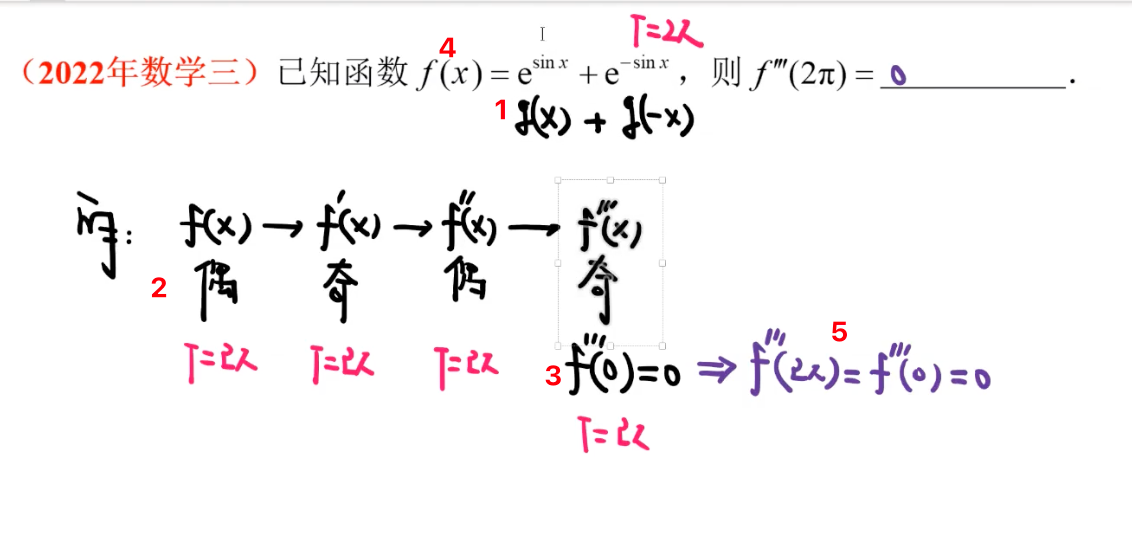 T=2π
4
（2022年数学三）已知函数 f(x) = e^{sin x} + e^{-sin x}，则 f'''(2π) = 0 .
1 g(x) + g(-x)
f(x) → f'(x) → f''(x) → f'''(x)
2 偶 奇 偶 奇
T=2π T=2π T=2π 3 f'''(0)=0 ⇒ f'''(2π)=f'''(0)=0
5
T=2π